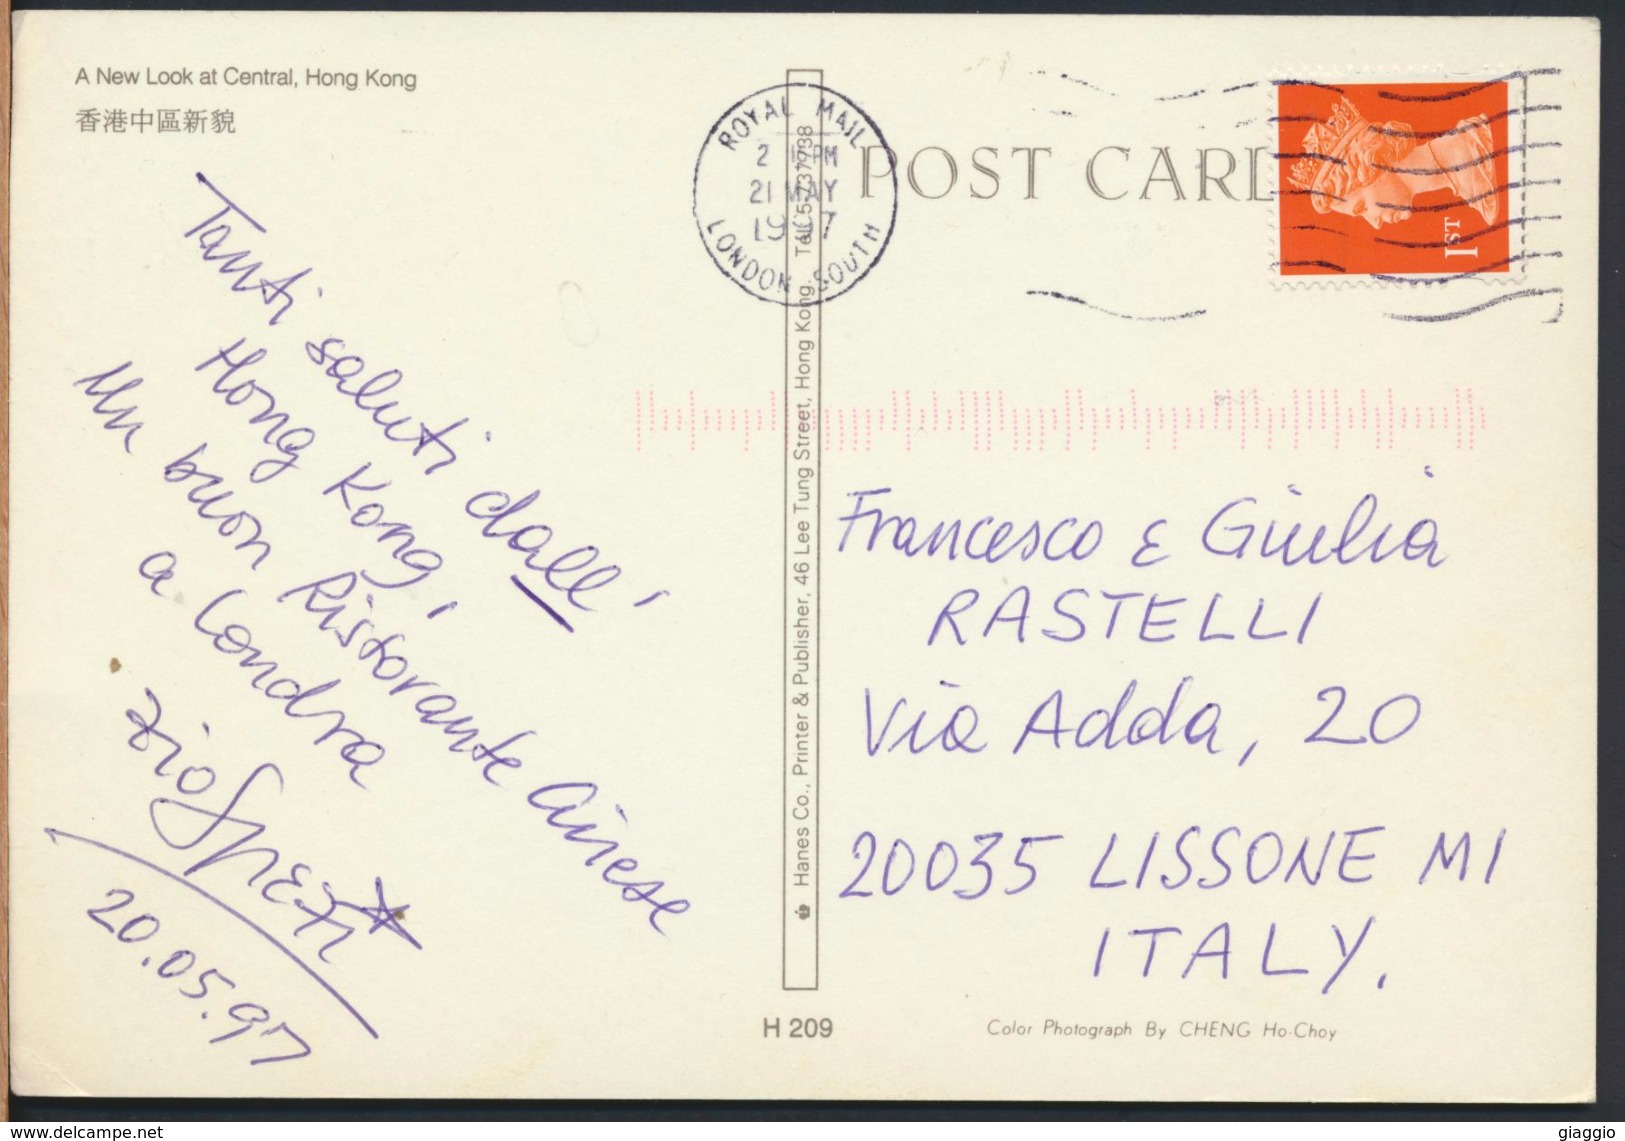 A New Look at Central, Hong Kong
香港中區新貌
Tanti saluti dall'
Hong Kong,
Un buon Ristorante Cinese
a Londra
zio
20.05.97
ROYAL MAIL
PM
21 MAY
1997
LONDON SOUTH
POST CARD
1ST
Hanes Co., Printer & Publisher, 46 Lee Tung Street, Hong Kong. Tel:
Francesco e Giulia
RASTELLI
Via Adda, 20
20035 LISSONE MI
ITALY.
H 209
Color Photograph By CHENG Ho-Choy
www.delcampe.net
giaggio